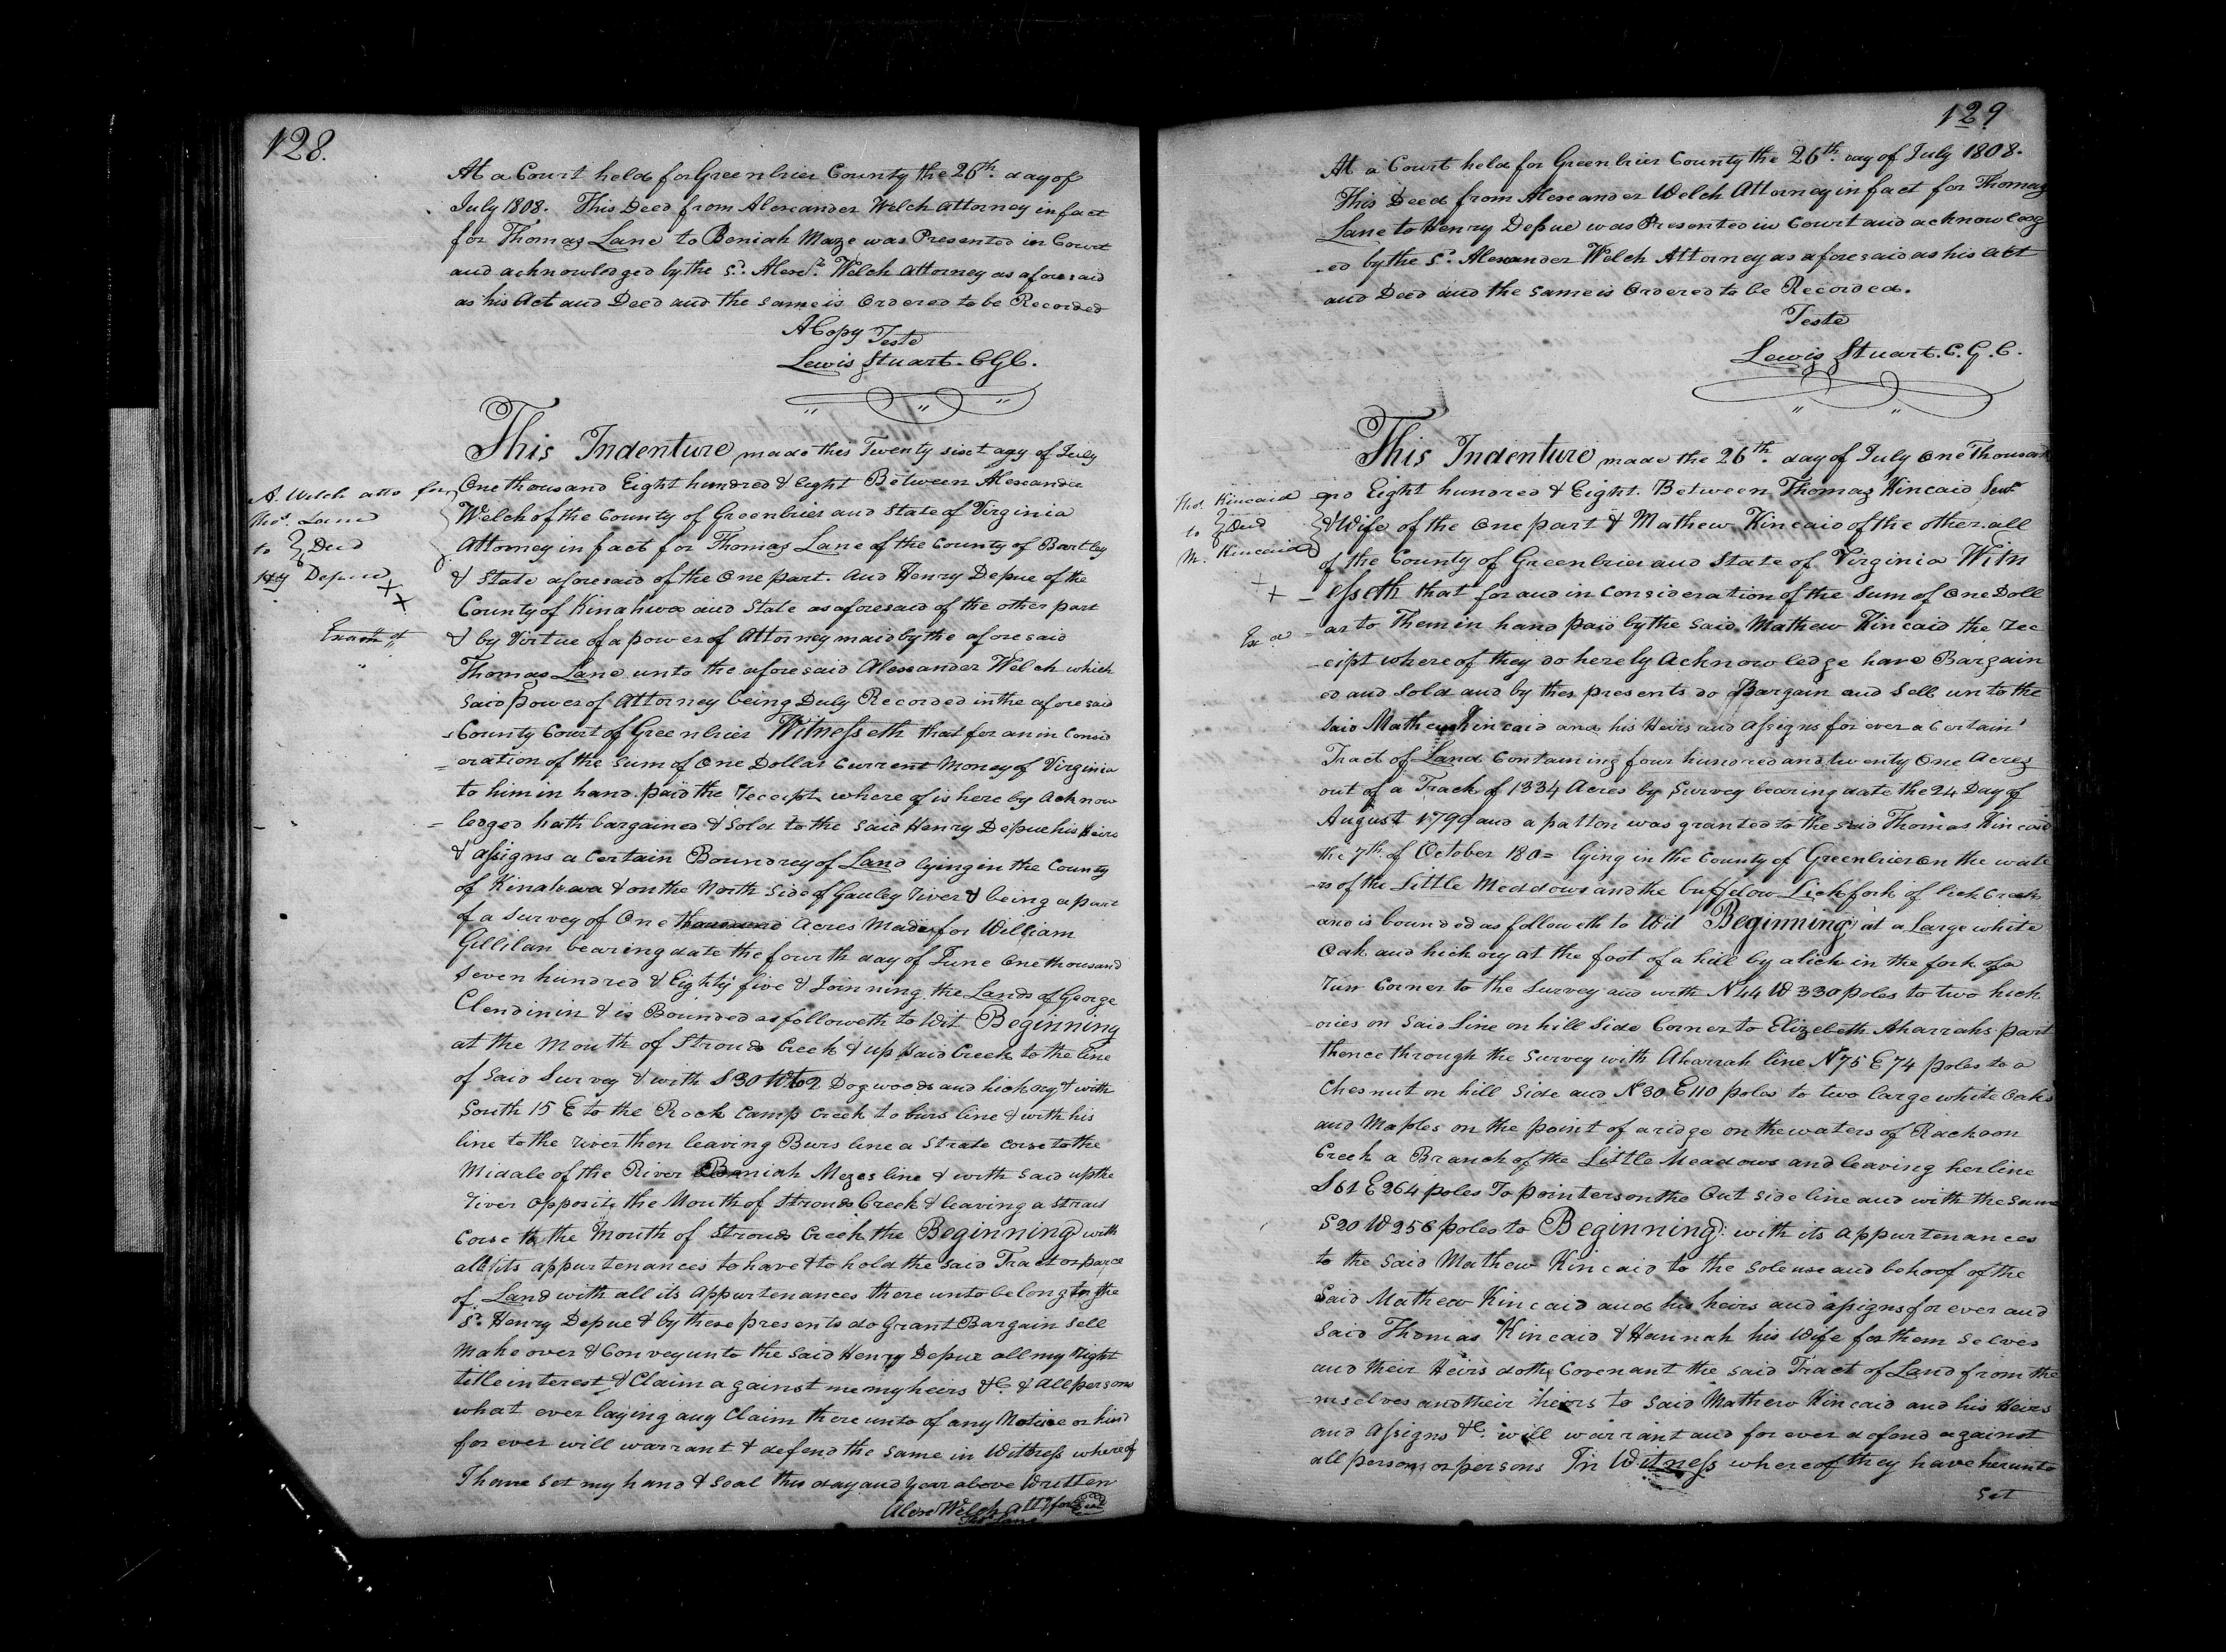 128.
At a Court held for Greenbrier County the 26th. day of
July 1808. This Deed from Alexander Welch attorney in fact
for Thomas Lane to Beniah Maze was Presented in Court
and acknowledged by the sd. Alexdr. Welch attorney as aforesaid
as his Act and Deed and the same is Ordered to be Recorded
A Copy Teste
Lewis Stuart. CGC.
A. Welch atto for
Thos. Lane
to } Deed
Hy Depue
Exam.d
This Indenture made this Twenty sixt day of July
One thousand Eight hundred & Eight Between Alexander
Welch of the County of Greenbrier and State of Virginia
Attorney in fact for Thomas Lane of the County of Bartley
& State aforesaid of the One part. and Henry Depue of the
County of Kinahwa and State as aforesaid of the other part
& by Virtue of a power of Attorney maid by the aforesaid
Thomas Lane unto the aforesaid Alexander Welch which
Said power of Attorney being Duly Recorded in the aforesaid
County Court of Greenbrier Witnesseth that for an in Consid
= eration of the Sum of One Dollar Current Money of Virginia
to him in hand paid the receipt where of is here by Acknow
= ledged hath bargained & Sold to the Said Henry Depue his Heirs
& assigns a Certain Boundrey of Land lying in the County
of Kinahwa & on the North Side of Gauley river & being a part
of a Survey of One thousand Acres Made for William
Gillilan bearing date the fourth day of June One thousand
Seven hundred & Eighty five & Joinning the Lands of George
Clendinin & is Bounded as followeth to Wit Beginning
at the Mouth of Strouds Creek & up Said Creek to the line
of Said Survey & with S 30 W to 2 Dogwoods and hickory & with
South 15 E to the Rock Camp Creek to burs line & with his
line to the river then leaving Burs line a Strate corse to the
Middle of the River Beaniah Mezes line & with Said up the
river opposite the Mouth of Strouds Creek & leaving a Strait
Corse to the Mouth of Strouds Creek the Beginning with
all its appurtenances to have & to hold the said Tract or parce
of Land with all its Appurtenances there unto belong to the
sd. Henry Depue & by these presents do Grant Bargain Sell
Make over & Convey unto the Said Henry Depue all my right
title interest & Claim against me my heirs &C. & all persons
what ever laying any Claim there unto of any Notice or kind
for ever will warrant & defend the same in Witness whereof
I have set my hand & Seal this day and year above Written
Alexr Welch Atty for Seal
Thos Lane
129
At a Court held for Greenbrier County the 26th. day of July 1808.
This Deed from Alexander Welch Attorney in fact for Thomas
Lane to Henry Depue was Presented in Court and acknowledg
- ed by the sd. Alexander Welch Attorney as aforesaid as his Act
and Deed and the same is Ordered to be Recorded.
Teste
Lewis Stuart. C. G. C.
Tho. Kincaid
to } Deed
M. Kincaid
Ex.d
This Indenture made the 26th. day of July One Thousand
and Eight hundred & Eight. Between Thomas Kincaid Senr
& Wife of the One part & Mathew Kincaid of the other. all
of the County of Greenbrier and State of Virginia Witn
- esseth that for and in Consideration of the Sum of One Doll
- ar to Them in hand paid by the said Mathew Kincaid the rec
- eipt where of they do herely Acknowledge have Bargain
ed and Sold and by thes presents do Bargain and Sell unto the
said Mathew Kincaid and his Heirs and Assigns for ever a Certain
Tract of Land Containing four hundred and twenty One Acres
out of a Track of 1334 Acres by Survey bearing date the 24 Day of
August 1799 and a patton was granted to the said Thomas Kincaid
the 7th. of October 180= lying in the County of Greenbrier on the wate
- rs of the Little Meddows and the buffelow Lick fork of lick Creek
and is bounded as followeth to Wit Beginning at a Large white
Oak and hickory at the foot of a hill by a lick in the fork of a
run Corner to the Survey and with N 44 W 330 poles to two hick
- ories on Said Line on hill Side Corner to Elizebeth Aharrahs part
thence through the Survey with Aharrah line N 75 E 74 poles to a
Chesnut on hill Side and N 30 E 110 poles to two large white Oaks
and Maples on the point of a ridge on the waters of Rackoon
Creek a Branch of the Little Meadows and leaving her line
S 61 E 264 poles To pointers on the Out side line and with the Same
S 20 W 256 poles to Beginning with its appurtenances
to the Said Mathew Kincaid to the Sole use and behoof of the
Said Mathew Kincaid and his heirs and assigns for ever and
Said Thomas Kincaid & Hannah his Wife for them selves
and their Heirs doth Covenant the said Tract of Land from the
- mselves and their heirs to Said Mathew Kincaid and his Heirs
and Assigns &C. will warrant and for ever defend against
all persons or persons In Witness whereof they have herunto
Set